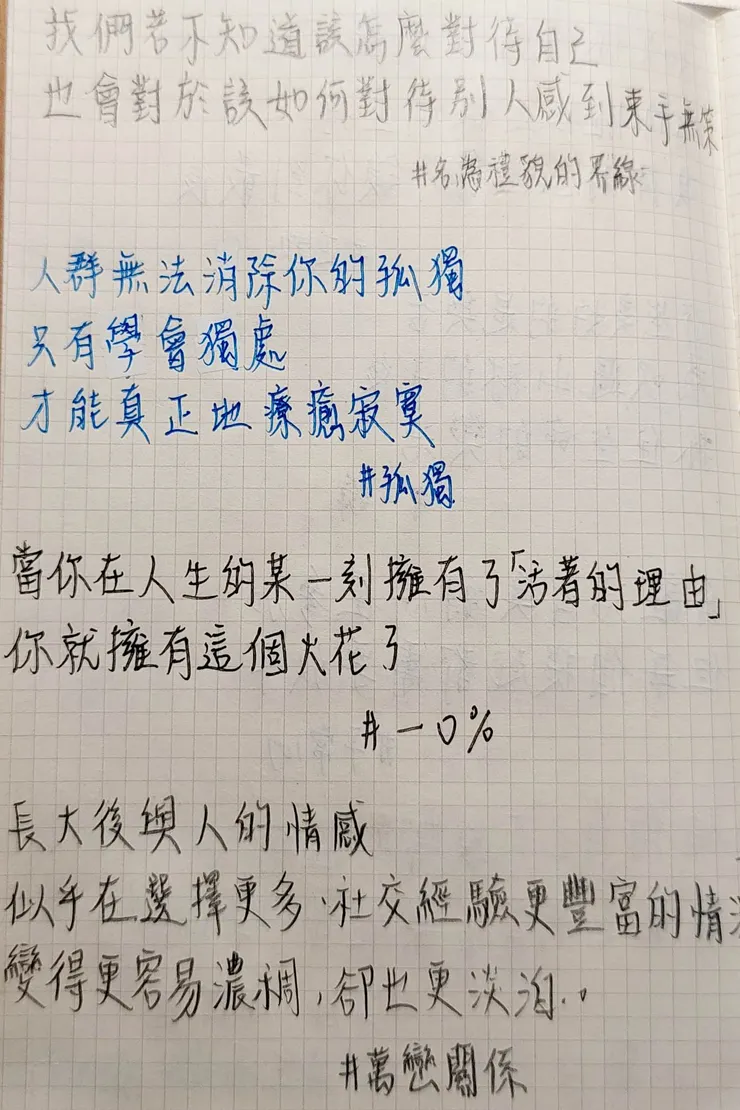 我們若不知道該怎麼對待自己
也會對於該如何對待別人感到束手無策
#名為禮貌的界線
人群無法消除你的孤獨
只有學會獨處
才能真正地療癒寂寞
#孤獨
當你在人生的某一刻擁有了「活著的理由」
你就擁有這個火花了
#一0%
長大後與人的情感
似乎在選擇更多、社交經驗更豐富的情
變得更容易濃稠,卻也更淡泊..
#萬巒關係